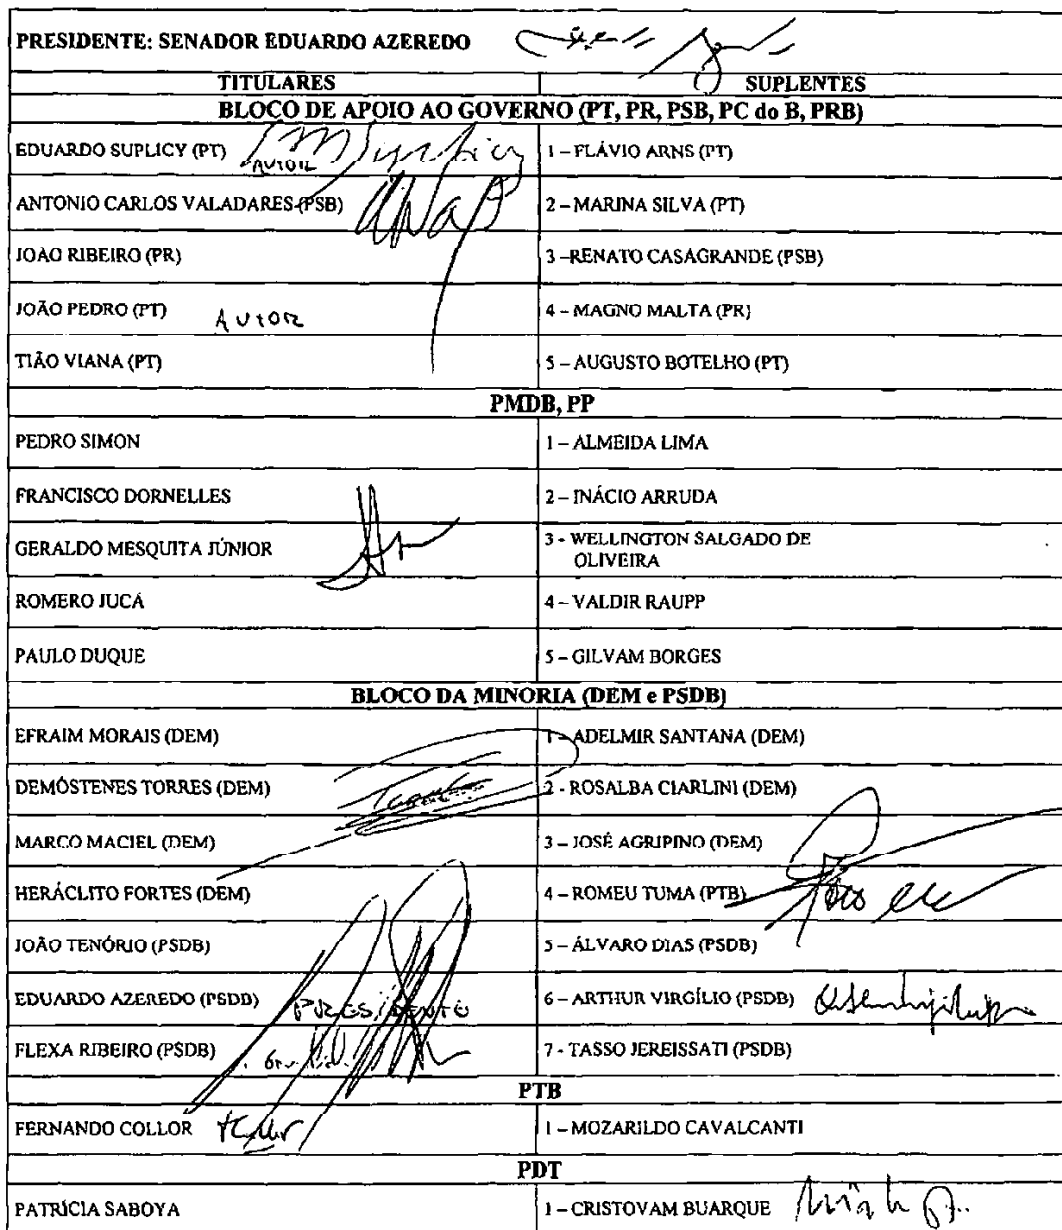 PRESIDENTE: SENADOR EDUARDO AZEREDO
TITULARES SUPLENTES
BLOCO DE APOIO AO GOVERNO (PT, PR, PSB, PC do B, PRB)
EDUARDO SUPLICY (PT) AUTOR 1 – FLÁVIO ARNS (PT)
ANTONIO CARLOS VALADARES (PSB) 2 – MARINA SILVA (PT)
JOAO RIBEIRO (PR) 3 –RENATO CASAGRANDE (PSB)
JOÃO PEDRO (PT) AUTOR 4 – MAGNO MALTA (PR)
TIÃO VIANA (PT) 5 – AUGUSTO BOTELHO (PT)
PMDB, PP
PEDRO SIMON 1 – ALMEIDA LIMA
FRANCISCO DORNELLES 2 – INÁCIO ARRUDA
GERALDO MESQUITA JÚNIOR 3 - WELLINGTON SALGADO DE
OLIVEIRA
ROMERO JUCÁ 4 – VALDIR RAUPP
PAULO DUQUE 5 – GILVAM BORGES
BLOCO DA MINORIA (DEM e PSDB)
EFRAIM MORAIS (DEM) 1 – ADELMIR SANTANA (DEM)
DEMÓSTENES TORRES (DEM) 2 - ROSALBA CIARLINI (DEM)
MARCO MACIEL (DEM) 3 – JOSÉ AGRIPINO (DEM)
HERÁCLITO FORTES (DEM) 4 – ROMEU TUMA (PTB)
JOÃO TENÓRIO (PSDB) 5 – ÁLVARO DIAS (PSDB)
EDUARDO AZEREDO (PSDB) PRESIDENTE 6 – ARTHUR VIRGÍLIO (PSDB)
FLEXA RIBEIRO (PSDB) 7 - TASSO JEREISSATI (PSDB)
PTB
FERNANDO COLLOR 1 – MOZARILDO CAVALCANTI
PDT
PATRÍCIA SABOYA 1 – CRISTOVAM BUARQUE